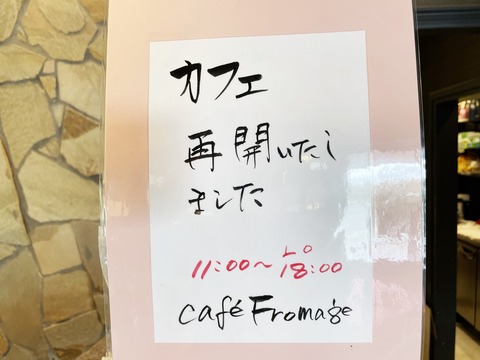 カフェ
再開いたし
ました
LO
11:00〜18:00
café Fromage